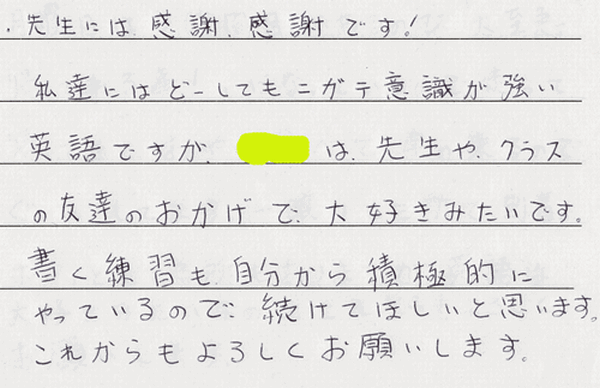 ・先生には感謝、感謝です!
私達にはどーしてもニガテ意識が強い
英語ですが、は、先生や、クラス
の友達のおかげで、大好きみたいです。
書く練習も、自分から積極的に
やっているので、続けてほしいと思います。
これからもよろしくお願いします。